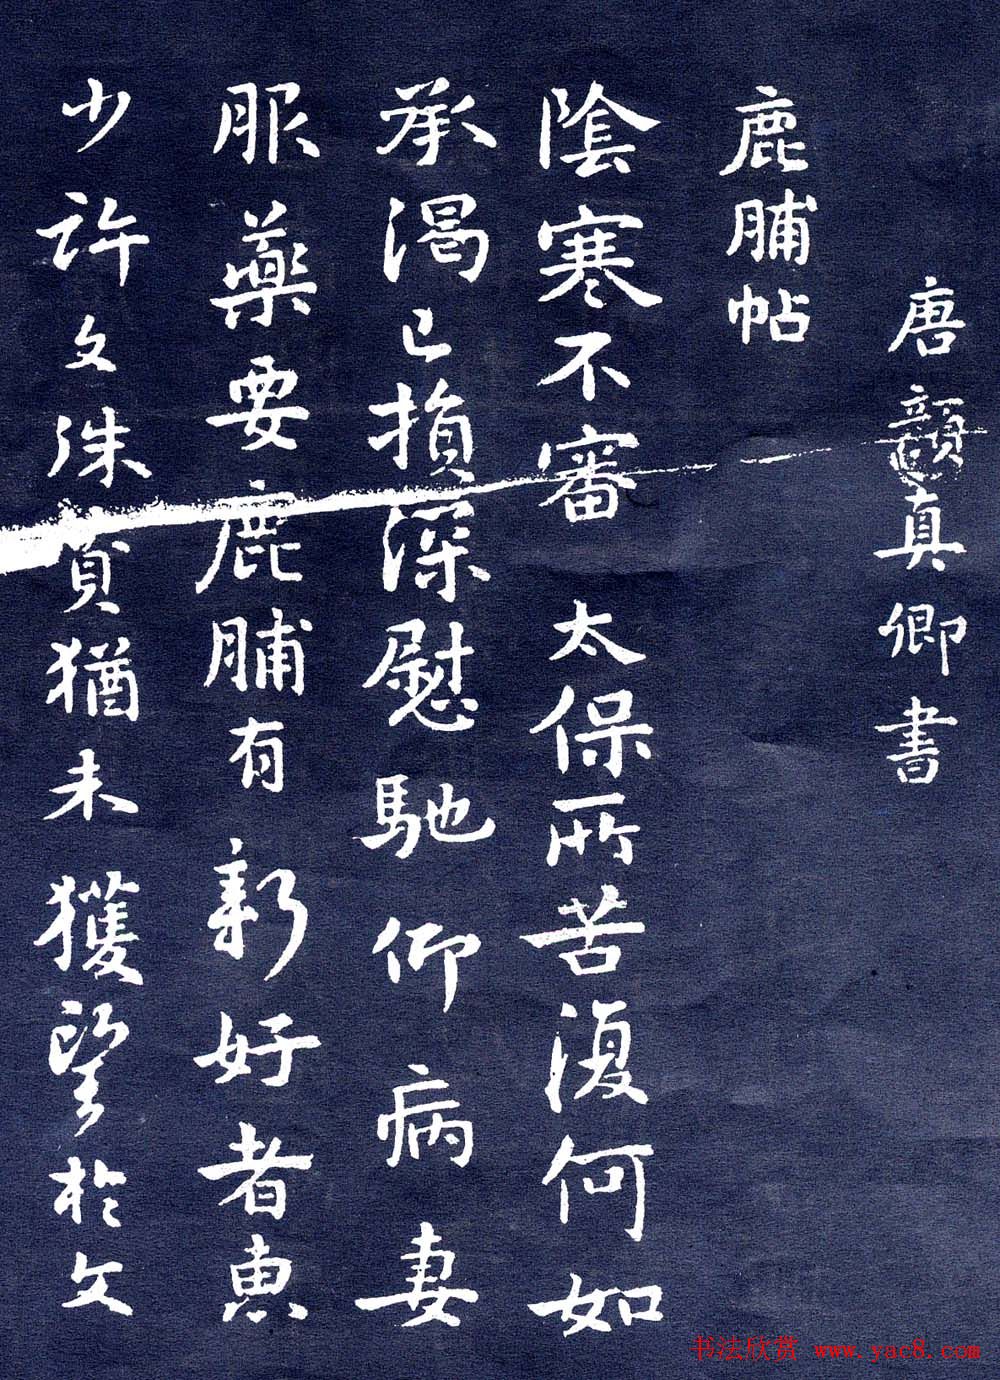 唐顏真卿書
鹿脯帖
陰寒不審太保所苦復何如
承渴已損深慰馳仰病妻
服藥要鹿脯有新好者恵
少許文殊猶未獲望於文
书法欣赏 www.yac8.com